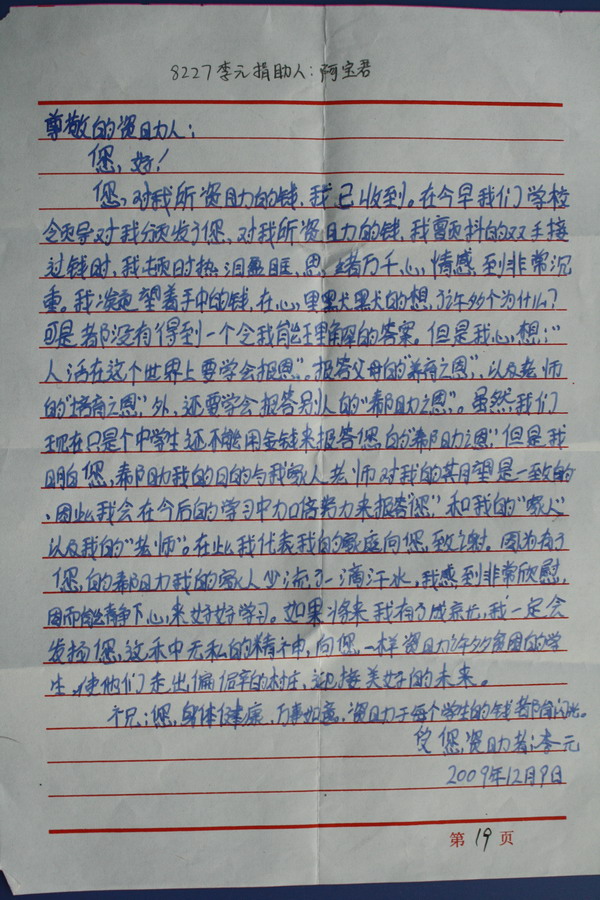 8227李元捐助人:阿宝君
尊敬的资助人:
您,好!
您,对我所资助的钱,我已收到。在今早我们学校
令页导对我颁发了您、对我所资助的钱、我颤抖的双手接
过钱时,我顿时热泪盈眶,思绪万千心,情感到非常沉
重。我凝望着手中的钱,在心里默默的想,了许多个为什么?
可是都没有得到一个令我能理解的答案。但是我心,想:"
人活在这个世界上要学会报恩"。报答父母的"养育之恩",以及老师
的"培育之恩"外,还要学会报答别人的"帮助之恩"。虽然我们
现在只是个中学生还不能用金钱来报答您的"帮助之恩"但是我
明白您,帮助我的目的与我家人老师对我的期望是一致的
、因此我会在今后的学习中加倍努力来报答"您"和我的"家人"
以及我的"老师"。在此我代表我的家庭向您,致谢。因为有了
您,的帮助我的家人少流了一滴汗水,我感到非常欣慰,
因而能静下心,来好好学习。如果将来我有了成就,我一定会
发扬您,这种无私的精神,向您,一样资助许多贫困的学
生,使他们走出偏僻的村庄,迎接美好的未来。
祝:您,身体健康,万事如意,资助于每个学生的钱都闪闪光。
受您资助者:李元
2009年12月9日
第19页